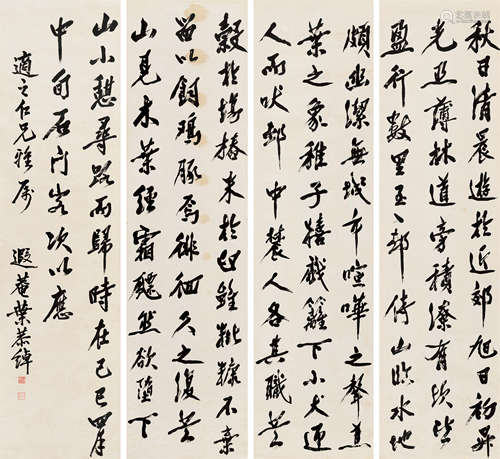 秋日清晨遊於近郊旭日初昇
光照薄林道旁積潦有坎皆
盈行數里至一邨倚山臨水地
頗幽潔無城市喧嘩之聲
葉之象稚子嬉戲籬下小犬迎
人而吠邨中農人各其職
穀於場樁米於臼雖秕糠不棄
留以飼雞豚焉徘徊久之復登
山見木葉經霜醜然欲墮下
山小憩尋路而歸時在己巳四月
中旬石门次以應
適之仁兄雅屬 遐菴葉恭綽